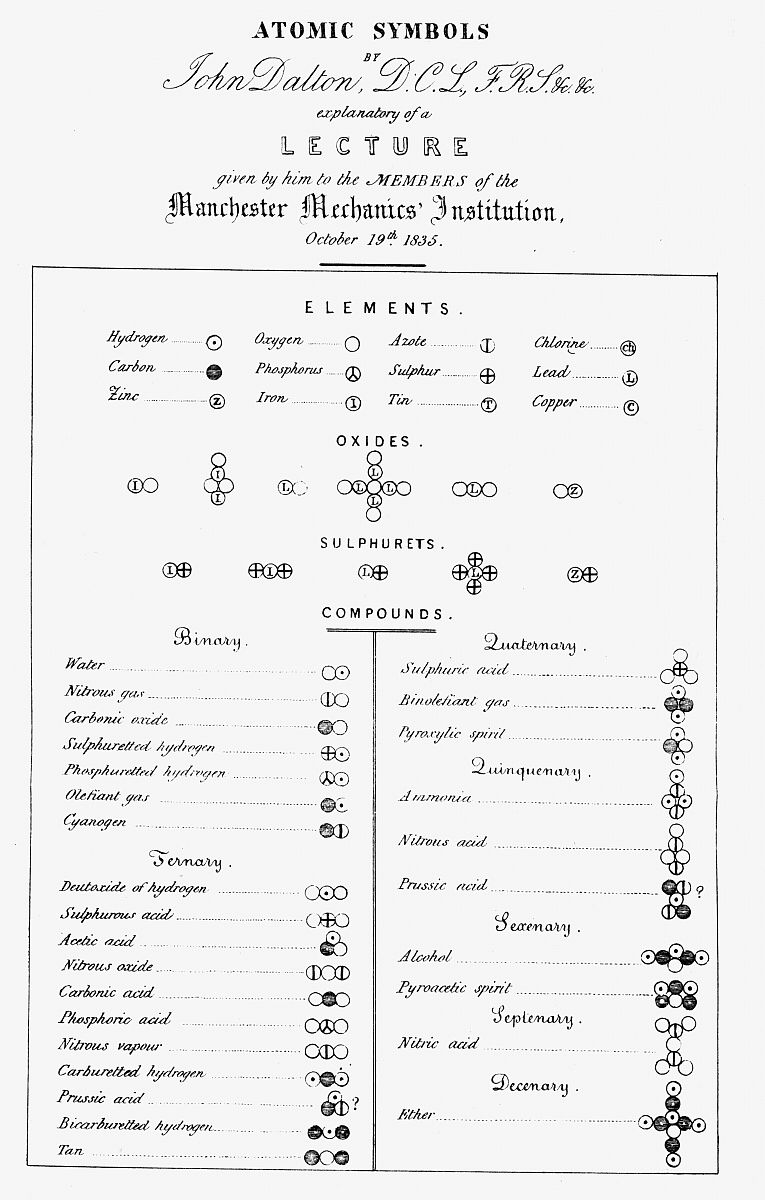 ATOMIC SYMBOLS
BY
John Dalton, D.C.L., F.R.S. &c. &c.
explanatory of a
LECTURE
given by him to the MEMBERS of the
Manchester Mechanics' Institution,
October 19th 1835.
ELEMENTS.
Hydrogen Oxygen Azote Chlorine ch
Carbon Phosphorus Sulphur Lead L
Zinc Z Iron I Tin T Copper C
OXIDES.
I I I L L L L L L Z
SULPHURETS.
I I L L Z
COMPOUNDS.
Binary.
Water
Nitrous gas
Carbonic oxide
Sulphuretted hydrogen
Phosphuretted hydrogen
Olefiant gas
Cyanogen
Ternary.
Deutoxide of hydrogen
Sulphurous acid
Acetic acid
Nitrous oxide
Carbonic acid
Phosphoric acid
Nitrous vapour
Carburetted hydrogen
Prussic acid ?
Bicarburetted hydrogen
Tan
Quaternary.
Sulphuric acid
Binolefiant gas
Pyroxylic spirit
Quinquenary.
Ammonia
Nitrous acid
Prussic acid ?
Sexenary.
Alcohol
Pyroacetic spirit
Septenary.
Nitric acid
Decenary.
Ether